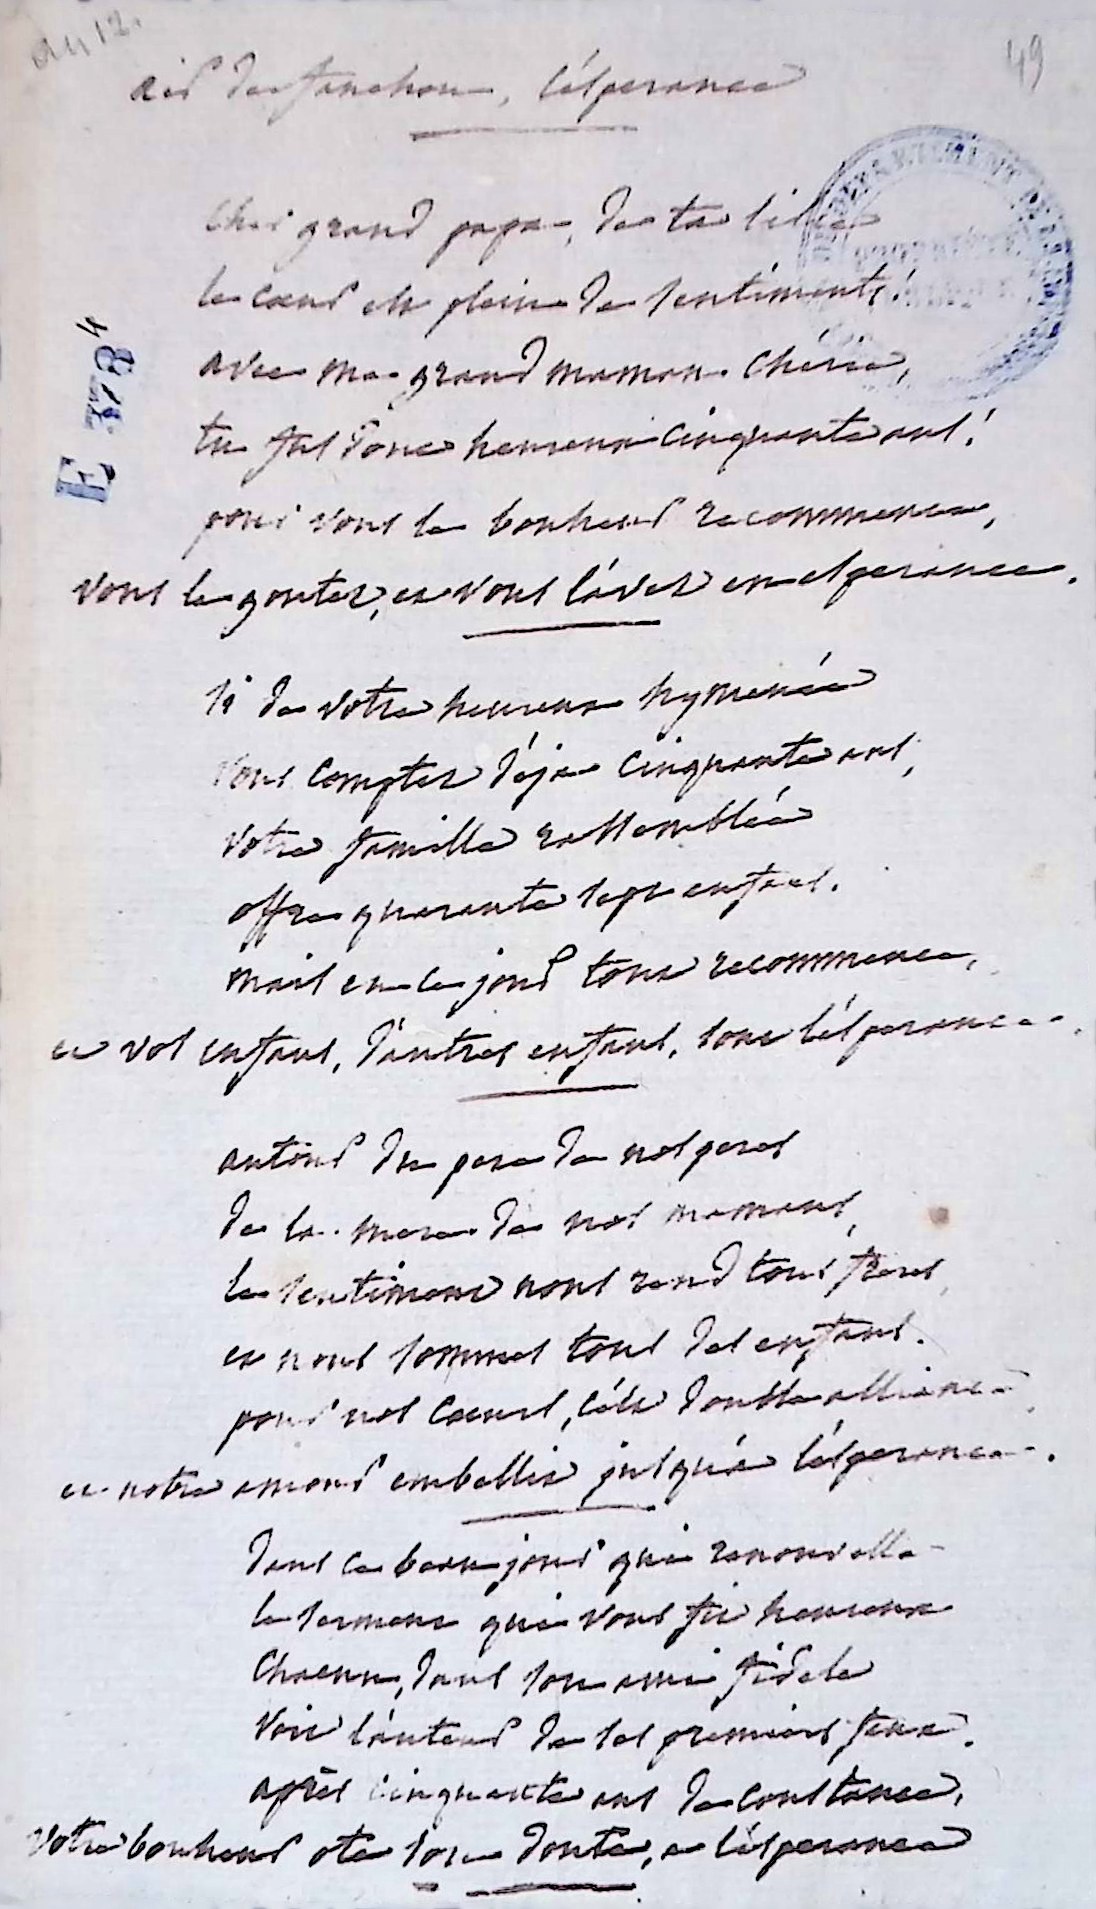 an 12.
49
air de fanchon, l'ésperance
cher grand papa, de ta
le coeur est plein de sentiments!
avec ma grand maman chérie,
tu fus donc heureux cinquante ans!
pour vous le bonheur recommence,
vous le goutez, et vous l'avez en esperance.
si de votre heureux hymenée
vous comptez déja cinquante ans,
votre famille rassemblée
offre quarante sept enfans.
mais en ce jour tout recommence,
et vos enfans, d'autres enfans, sont l'ésperance.
autour du pere de nos peres
de la mere de nos mamans,
le sentiment nous rend tous freres,
et nous sommes tous des enfans.
pour nos coeurs, c'est double alliance
et notre amour embellit jusqu'à l'ésperance.
dans ce beau jour qui renouvelle
le serment qui vous fit heureux
chacun, dans son ami fidele
voit l'auteur de ses premiers feux.
après cinquante ans de constance,
votre bonheur ote son doute, a l'ésperance
E 484